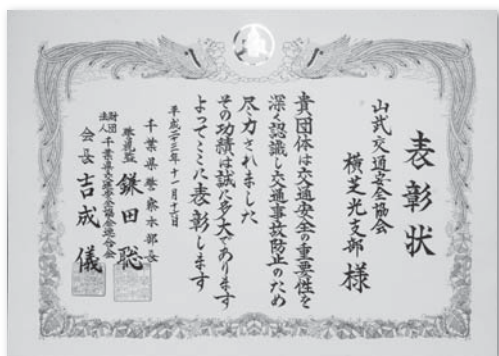 表彰状
山武交通安全協会
横芝光支部 様
貴団体は交通安全の重要性を
深く認識し交通事故防止のため
尽力されました
その功績は誠に多大であります
よってここに表彰します
平成二十三年十一月十六日
千葉県警察本部長
警視監 鎌田 聡
財団法人 千葉県交通安全協会連合会
会長 吉成 儀